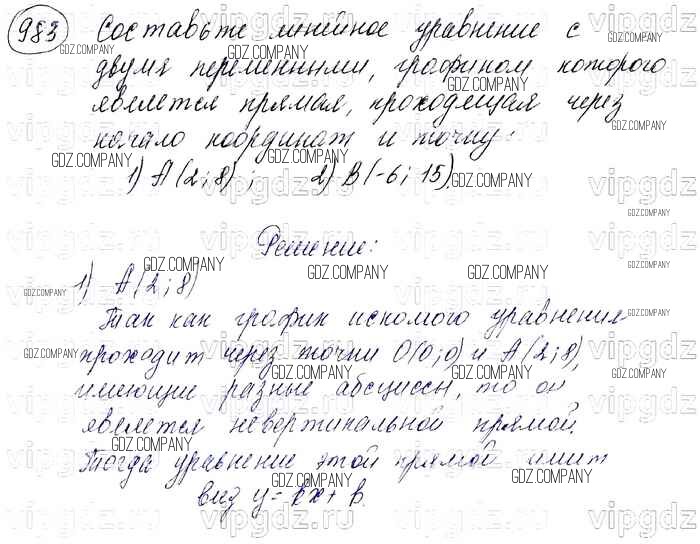 983 Составьте линейное уравнение с
двумя переменными, графиком которого
является прямая, проходящая через
начало координат и точку:
1) A(2; 8); 2) B(-6; 15)
Решение:
1) A(2; 8)
Так как график искомого уравнения
проходит через точки O(0; 0) и A(2; 8),
имеющие разные абсциссы, то он
является невертикальной прямой.
Тогда уравнение этой прямой имеет
вид y = kx + b.
GDZ.COMPANY
vipgdz.ru